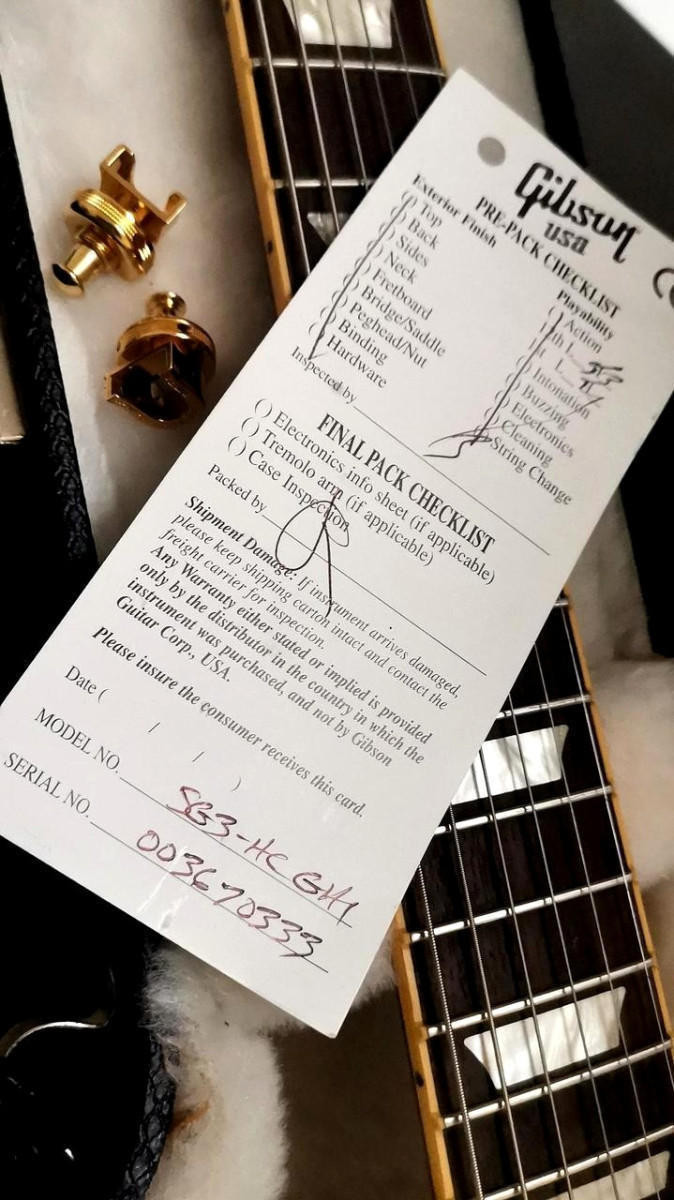 Gibson
USA
PRE-PACK CHECKLIST
Exterior Finish
() Top
() Back
() Sides
() Neck
() Fretboard
() Bridge/Saddle
() Peghead/Nut
() Binding
() Hardware
Playability
() Action
12th L
1st L
() Intonation
() Buzzing
() Electronics
() Cleaning
() String Change
Inspected by
FINAL PACK CHECKLIST
() Electronics info sheet (if applicable)
() Tremolo arm (if applicable)
() Case Inspection
Packed by
Shipment Damage: If instrument arrives damaged,
please keep shipping carton intact and contact the
freight carrier for inspection.
Any Warranty either stated or implied is provided
only by the distributor in the country in which the
instrument was purchased, and not by Gibson
Guitar Corp., USA.
Please insure the consumer receives this card.
Date ( / / )
MODEL NO. SG3-HC GH1
SERIAL NO. 003670333